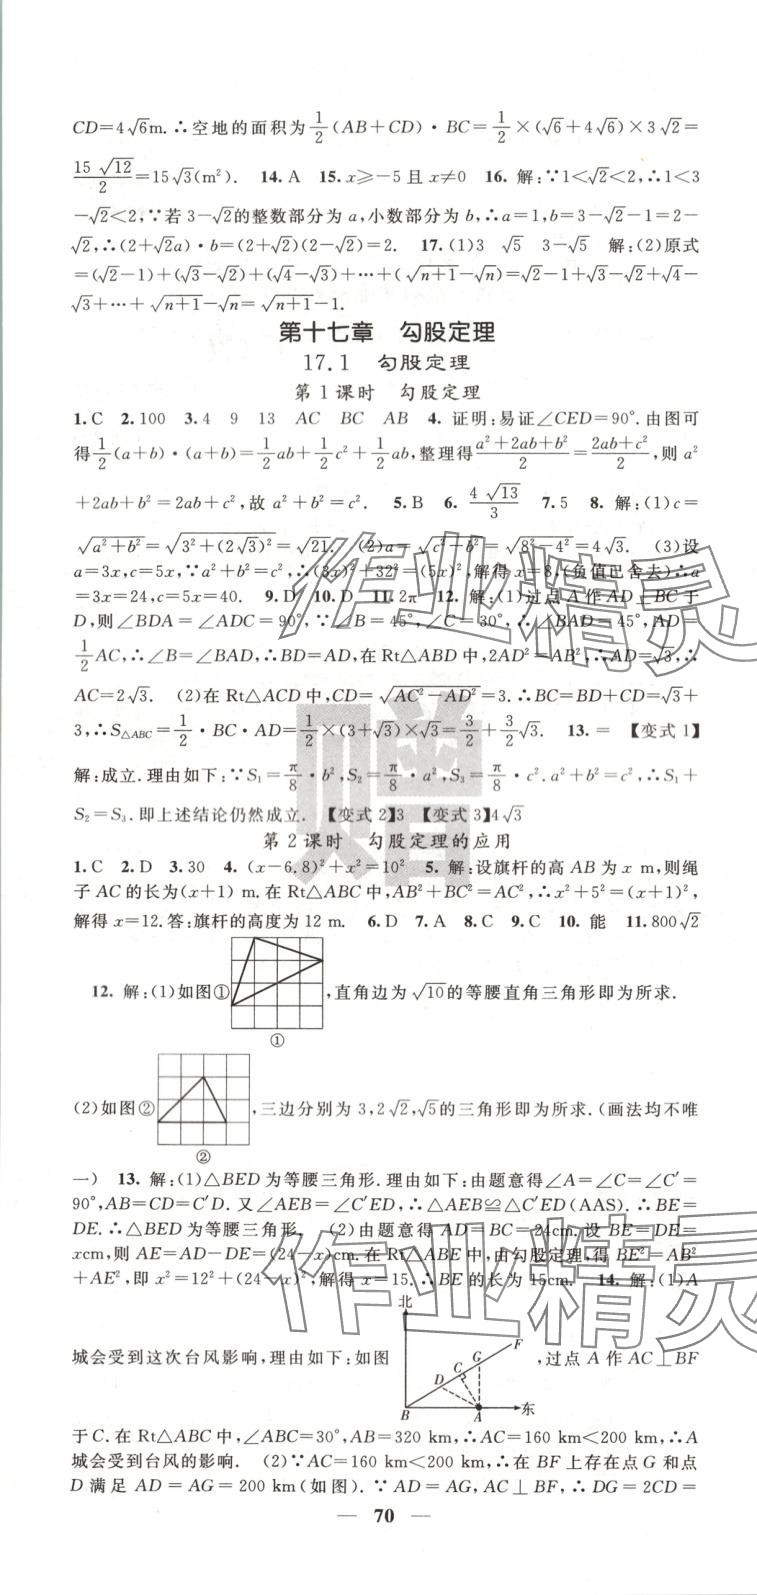 CD=4√6m.∴空地的面积为1/2(AB+CD)·BC=1/2×(√6+4√6)×3√2=
15√12/2=15√3(m²). 14. A 15. x≥-5且x≠0 16. 解:∵1<√2<2,∴1<3
-√2<2,∵若3-√2的整数部分为a,小数部分为b,∴a=1,b=3-√2-1=2-
√2,∴(2+√2a)·b=(2+√2)(2-√2)=2. 17. (1)3 √5 3-√5 解:(2)原式
=(√2-1)+(√3-√2)+(√4-√3)+…+(√n+1-√n)=√2-1+√3-√2+√4-
√3+…+√n+1-√n=√n+1-1.
第十七章 勾股定理
17.1 勾股定理
第1课时 勾股定理
1. C 2. 100 3. 4 9 13 AC BC AB 4. 证明:易证∠CED=90°.由图可
得1/2(a+b)·(a+b)=1/2ab+1/2c²+1/2ab,整理得a²+2ab+b²/2=2ab+c²/2,则a²
+2ab+b²=2ab+c²,故a²+b²=c². 5. B 6. 4√13/3 7. 5 8. 解:(1)c=
√a²+b²=√3²+(2√3)²=√21. (2)a=√c²-b²=√8²-4²=4√3. (3)设
a=3x,c=5x,∵a²+b²=c²,∴(3x)²+32²=(5x)²,解得x=8.(负值已舍去)∴a
=3x=24,c=5x=40. 9. D 10. D 11. 2π 12. 解:(1)过点A作AD⊥BC于
D,则∠BDA=∠ADC=90°,∵∠B=45°,∠C=30°,∴∠BAD=45°,AD=
1/2AC,∴∠B=∠BAD,∴BD=AD,在Rt△ABD中,2AD²=AB²,∴AD=√3,∴
AC=2√3. (2)在Rt△ACD中,CD=√AC²-AD²=3.∴BC=BD+CD=√3+
3,∴S△ABC=1/2·BC·AD=1/2×(3+√3)×√3=3/2+3/2√3. 13. = 【变式1】
解:成立.理由如下:∵S₁=π/8·b²,S₂=π/8·a²,S₃=π/8·c².a²+b²=c²,∴S₁+
S₂=S₃.即上述结论仍然成立. 【变式2】3 【变式3】4√3
第2课时 勾股定理的应用
1. C 2. D 3. 30 4. (x-6.8)²+x²=10² 5. 解:设旗杆的高AB为x m,则绳
子AC的长为(x+1) m.在Rt△ABC中,AB²+BC²=AC²,∴x²+5²=(x+1)²,
解得x=12.答:旗杆的高度为12 m. 6. D 7. A 8. C 9. C 10. 能 11. 800√2
12. 解:(1)如图①,直角边为√10的等腰直角三角形即为所求.
①
(2)如图②,三边分别为3,2√2,√5的三角形即为所求.(画法均不唯
②
一) 13. 解:(1)△BED为等腰三角形.理由如下:由题意得∠A=∠C=∠C′=
90°,AB=CD=C′D.又∠AEB=∠C′ED,∴△AEB≌△C′ED(AAS).∴BE=
DE.∴△BED为等腰三角形. (2)由题意得AD=BC=24cm.设BE=DE=
xcm,则AE=AD-DE=(24-x)cm.在Rt△ABE中,由勾股定理,得BE²=AB²
+AE²,即x²=12²+(24-x)²,解得x=15.∴BE的长为15cm. 14. 解:(1)A
北
F
G
C
D
B
A
东
城会受到这次台风影响,理由如下:如图,过点A作AC⊥BF
于C.在Rt△ABC中,∠ABC=30°,AB=320 km,∴AC=160 km<200 km,∴A
城会受到台风的影响. (2)∵AC=160 km<200 km,∴在BF上存在点G和点
D满足AD=AG=200 km(如图).∵AD=AG,AC⊥BF,∴DG=2CD=
— 70 —
作业精灵
赠
作业精灵